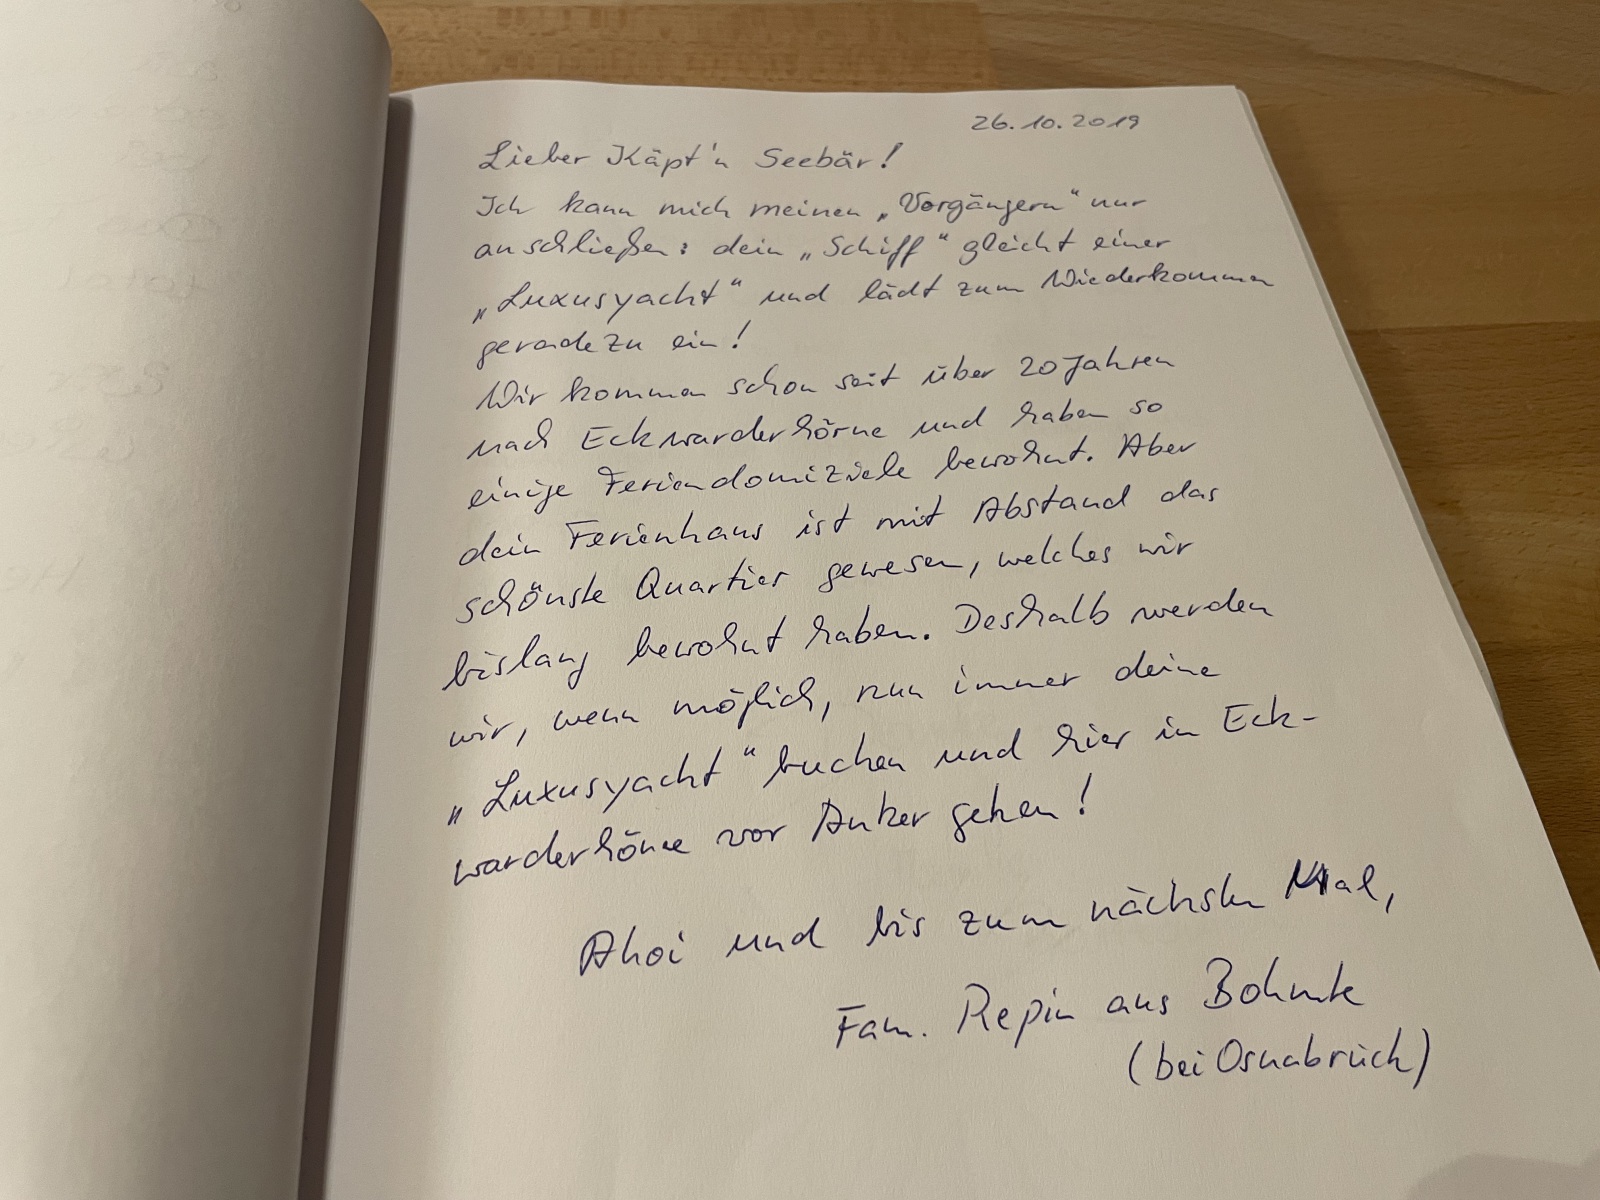 26.10.2019
Lieber Käpt'n Seebär!
Ich kann mich meinen „Vorgängern“ nur
anschließen: dein „Schiff“ gleicht einer
„Luxusyacht“ und lädt zum Wiederkommen
geradezu ein!
Wir kommen schon seit über 20 Jahren
nach Eckwarderhörne und haben so
einige Feriendomiziele bewohnt. Aber
dein Ferienhaus ist mit Abstand das
schönste Quartier gewesen, welches wir
bislang bewohnt haben. Deshalb werden
wir, wenn möglich, nun immer deine
„Luxusyacht“ buchen und hier in Eck-
warderhörne vor Anker gehen!
Ahoi und bis zum nächsten Mal,
Fam. Repin aus Bohmte
(bei Osnabrück)